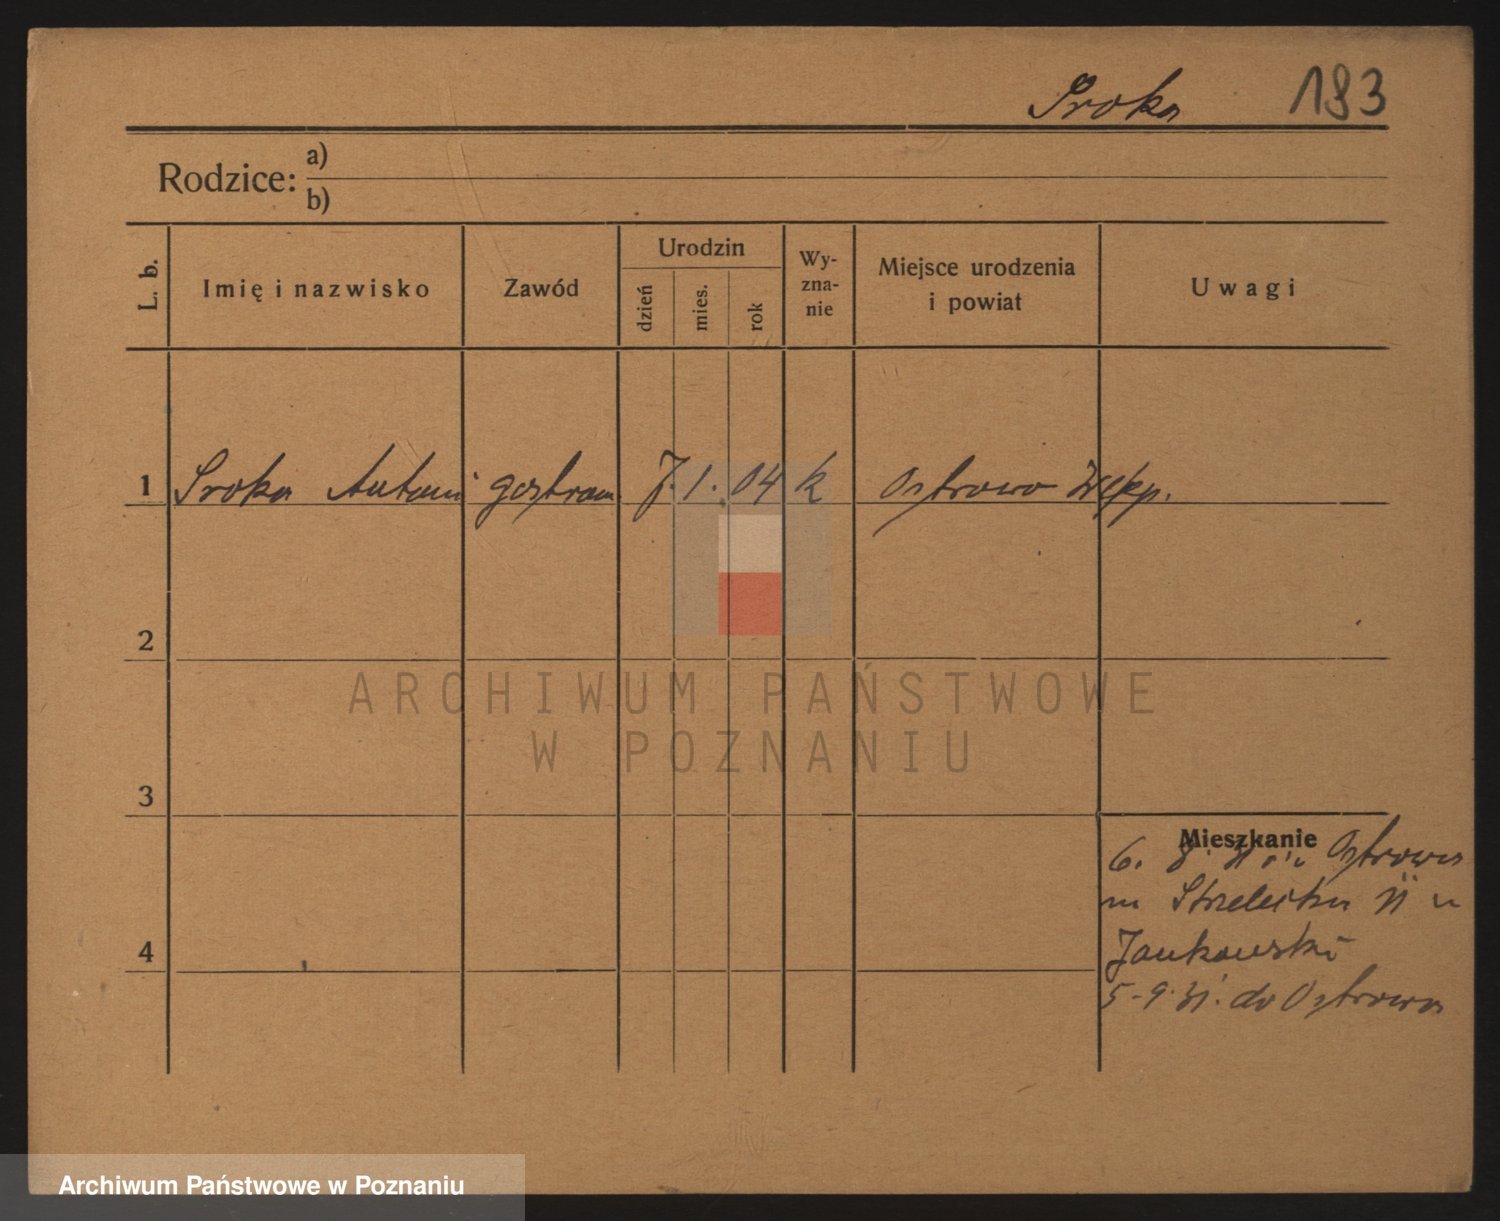 Sroka 193
Rodzice: a)
b)
L. b.
Imię i nazwisko
Zawód
Urodzin
dzień
mies.
rok
Wy-
zna-
nie
Miejsce urodzenia
i powiat
Uwagi
1 Sroka Antoni gastron. 7. 1. 04 k Ostrowo Wlkp.
2
3
4
Mieszkanie
6. 8. 31 Ostrowa
Strzelecka
Jankowski
5-9.31. do Ostrowa
ARCHIWUM PAŃSTWOWE
W POZNANIU
Archiwum Państwowe w Poznaniu